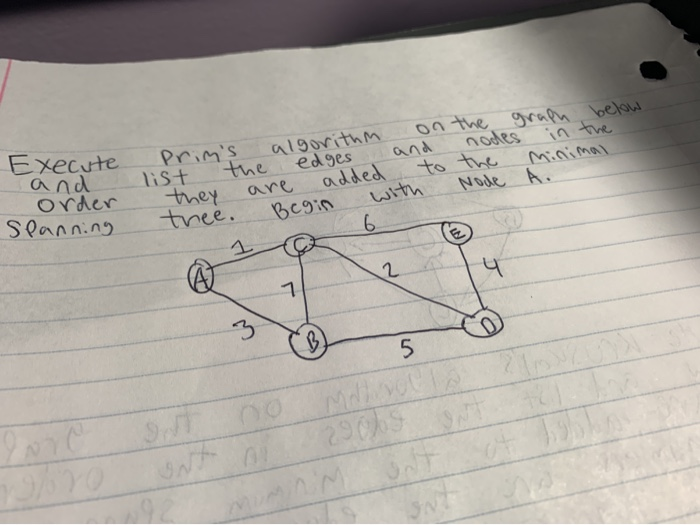 Execute Prim's algorithm on the graph below
and list the edges and nodes in the
order they are added to the minimal
spanning tree. Begin with Node A.
1
6
C
E
A
2
4
7
3
B
D
5